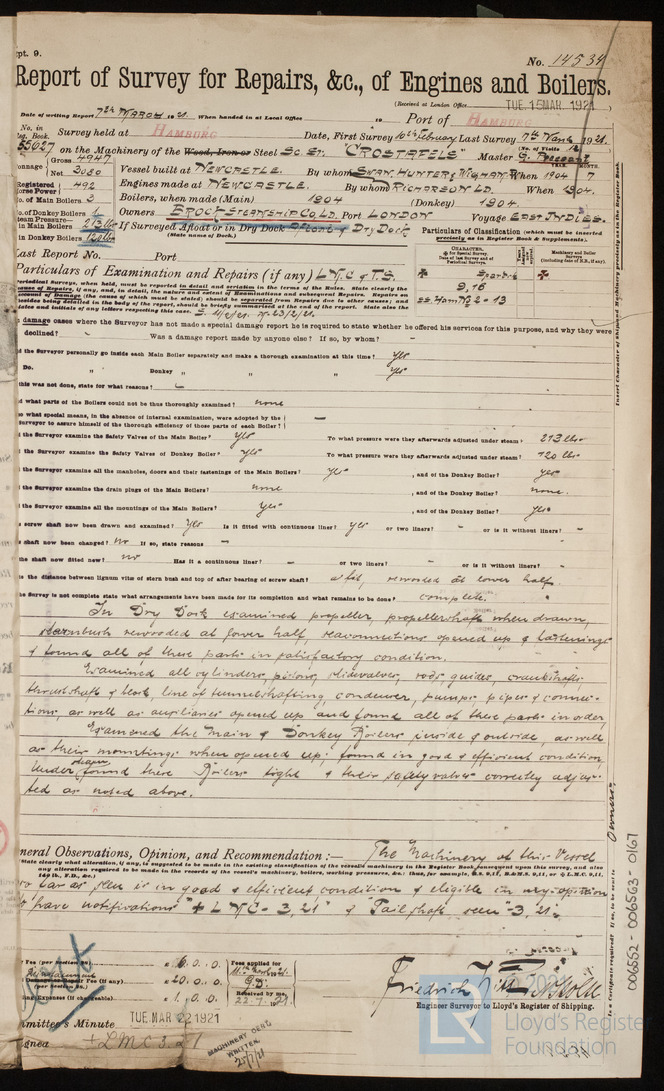 pt. 9.
No. 14534
Report of Survey for Repairs, &c., of Engines and Boilers.
(Received at London Office TUE. 15 MAR. 1921)
Date of writing Report 7th March 1921 When handed in at Local Office 19 Port of HAMBURG
No. in Reg. Book. Survey held at HAMBURG Date, First Survey 10th February Last Survey 7th March 1921
55627 on the Machinery of the Wood, Iron or Steel Sc. Sr. "CROSTAFELS" Master G.
(No. of Visits 12)
Tonnage Gross 4947 Net 3080 Vessel built at NEWCASTLE. By whom SWAN HUNTER & WIGHAM R. When 1904 7
Registered Horse Power 492 Engines made at NEWCASTLE. By whom RICHARDSON LD. When 1904.
No. of Main Boilers 3 Boilers, when made (Main) 1904 (Donkey) 1904.
No. of Donkey Boilers 1 Owners BROCK STEAMSHIP CO. LD. Port LONDON Voyage EAST INDIES.
Steam Pressure— in Main Boilers 213 lbs If Surveyed Afloat or in Dry Dock Afloat & Dry Dock
in Donkey Boilers 120 lbs (State name of Dock.)
Particulars of Classification (which must be inserted precisely as in Register Book & Supplements).
Last Report No. Port
Particulars of Examination and Repairs (if any) LMC & TS.
In damage cases where the Surveyor has not made a special damage report he is required to state whether he offered his services for this purpose, and why they were
declined? Was a damage report made by anyone else? If so, by whom?
Did the Surveyor personally go inside each Main Boiler separately and make a thorough examination at this time? yes
Do. " Donkey " " " yes
If this was not done, state for what reasons?
And what parts of the Boilers could not be thoroughly examined? none
Also what special means, in the absence of internal examination, were adopted by the
Surveyor to assure himself of the thorough efficiency of those parts of each Boiler? —
Did the Surveyor examine the Safety Valves of the Main Boiler? yes To what pressure were they afterwards adjusted under steam? 213 lbs
Did the Surveyor examine the Safety Valves of Donkey Boiler? yes To what pressure were they afterwards adjusted under steam? 120 lbs
Did the Surveyor examine all the manholes, doors and their fastenings of the Main Boilers? yes , and of the Donkey Boiler? yes
Did the Surveyor examine the drain plugs of the Main Boilers? none , and of the Donkey Boiler? none.
Did the Surveyor examine all the mountings of the Main Boilers? yes , and of the Donkey Boiler? yes
screw shaft now been drawn and examined? yes Is it fitted with continuous liner? yes or two liners? — or is it without liners? —
shaft now been changed? no If so, state reasons —
the shaft now fitted new? no Has it a continuous liner? — or two liners? — or is it without liners? —
is the distance between lignum vitæ of stern bush and top of after bearing of screw shaft? rewooded at lower half.
the Survey is not complete state what arrangements have been made for its completion and what remains to be done? complete.
In Dry Dock examined propeller, propellershaft when drawn,
sternbush rewooded at lower half, seaconnections opened up & fastenings
& found all of these parts in satisfactory condition.
Examined all cylinders, pistons, slidevalves, rods guides, crankshafts,
thrustshaft & block line of tunnelshafting, condenser, pumps, pipes & connec-
tions, as well as auxiliaries opened up and found all of these parts in order
Examined the Main & Donkey Boilers inside & outside, as well
as their mountings when opened up; found in good & efficient condition,
Under steam found these Boilers tight & their safety valves correctly adjus-
ted as noted above.
General Observations, Opinion, and Recommendation:— The Machinery of this Vessel
(State clearly what alteration, if any, is suggested to be made in the existing classification of the vessel's machinery in the Register Book consequent upon this survey, and also
any alteration required to be made in the records of the vessel's machinery, boilers, working pressures, &c.; thus, for example, B.S. 9,11, B.&M.S. 9,11, or LMC 9,11,
140 lb., F.D., &c.)
so far as seen is in good & efficient condition & eligible in my opinion
to have notifications "+ LMC - 3,21" & "Tail shaft seen 3,21".
Fee (per Section) £ 6. 0. 0. Fees applied for
Damage or Repair Fee (if any) £ 20. 0. 0.
(per Section)
Travelling Expenses (if chargeable) £ 1. 0. 0. Received by me,
Friedrich
Engineer Surveyor to Lloyd's Register of Shipping.
Committee's Minute TUE. MAR 22 1921
Assigned + LMC 3.21
MACHINERY CERT. WRITTEN.
006552 - 006563 - 0167
© 2021
LR
Lloyd's Register
Foundation